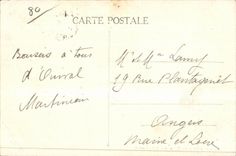 80
CARTE POSTALE
Bonsoirs à tous
d'Orval
Martineau
Mr & Mme Lamy
19 Rue Plantagenêt
Angers
Maine et Loire